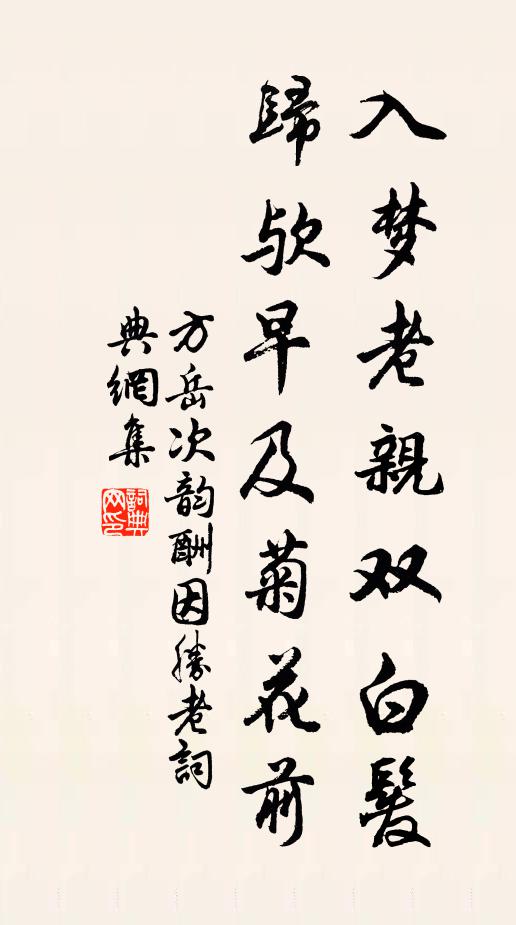 入梦老親双白髮
歸欤早及菊花前
方岳次韵酬因勝老詞
典網集
詞典网印